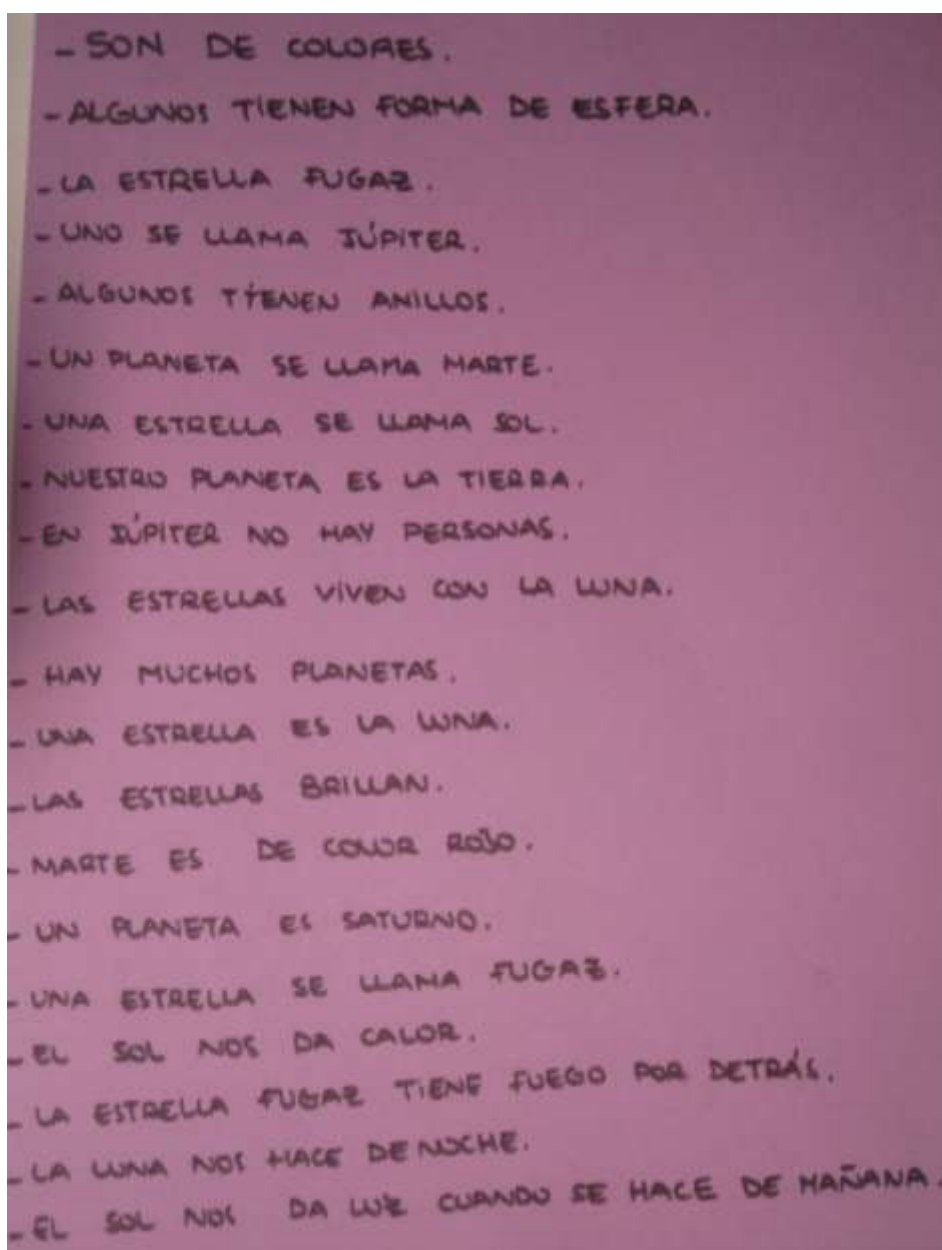 - SON DE COLORES.
- ALGUNOS TIENEN FORMA DE ESFERA.
- LA ESTRELLA FUGAZ.
- UNO SE LLAMA JÚPITER.
- ALGUNOS TIENEN ANILLOS.
- UN PLANETA SE LLAMA MARTE.
- UNA ESTRELLA SE LLAMA SOL.
- NUESTRO PLANETA ES LA TIERRA.
- EN JÚPITER NO HAY PERSONAS.
- LAS ESTRELLAS VIVEN CON LA LUNA.
- HAY MUCHOS PLANETAS.
- UNA ESTRELLA ES LA LUNA.
- LAS ESTRELLAS BRILLAN.
- MARTE ES DE COLOR ROJO.
- UN PLANETA ES SATURNO.
- UNA ESTRELLA SE LLAMA FUGAZ.
- EL SOL NOS DA CALOR.
- LA ESTRELLA FUGAZ TIENE FUEGO POR DETRÁS.
- LA LUNA NOS HACE DE NOCHE.
- EL SOL NOS DA LUZ CUANDO SE HACE DE MAÑANA.